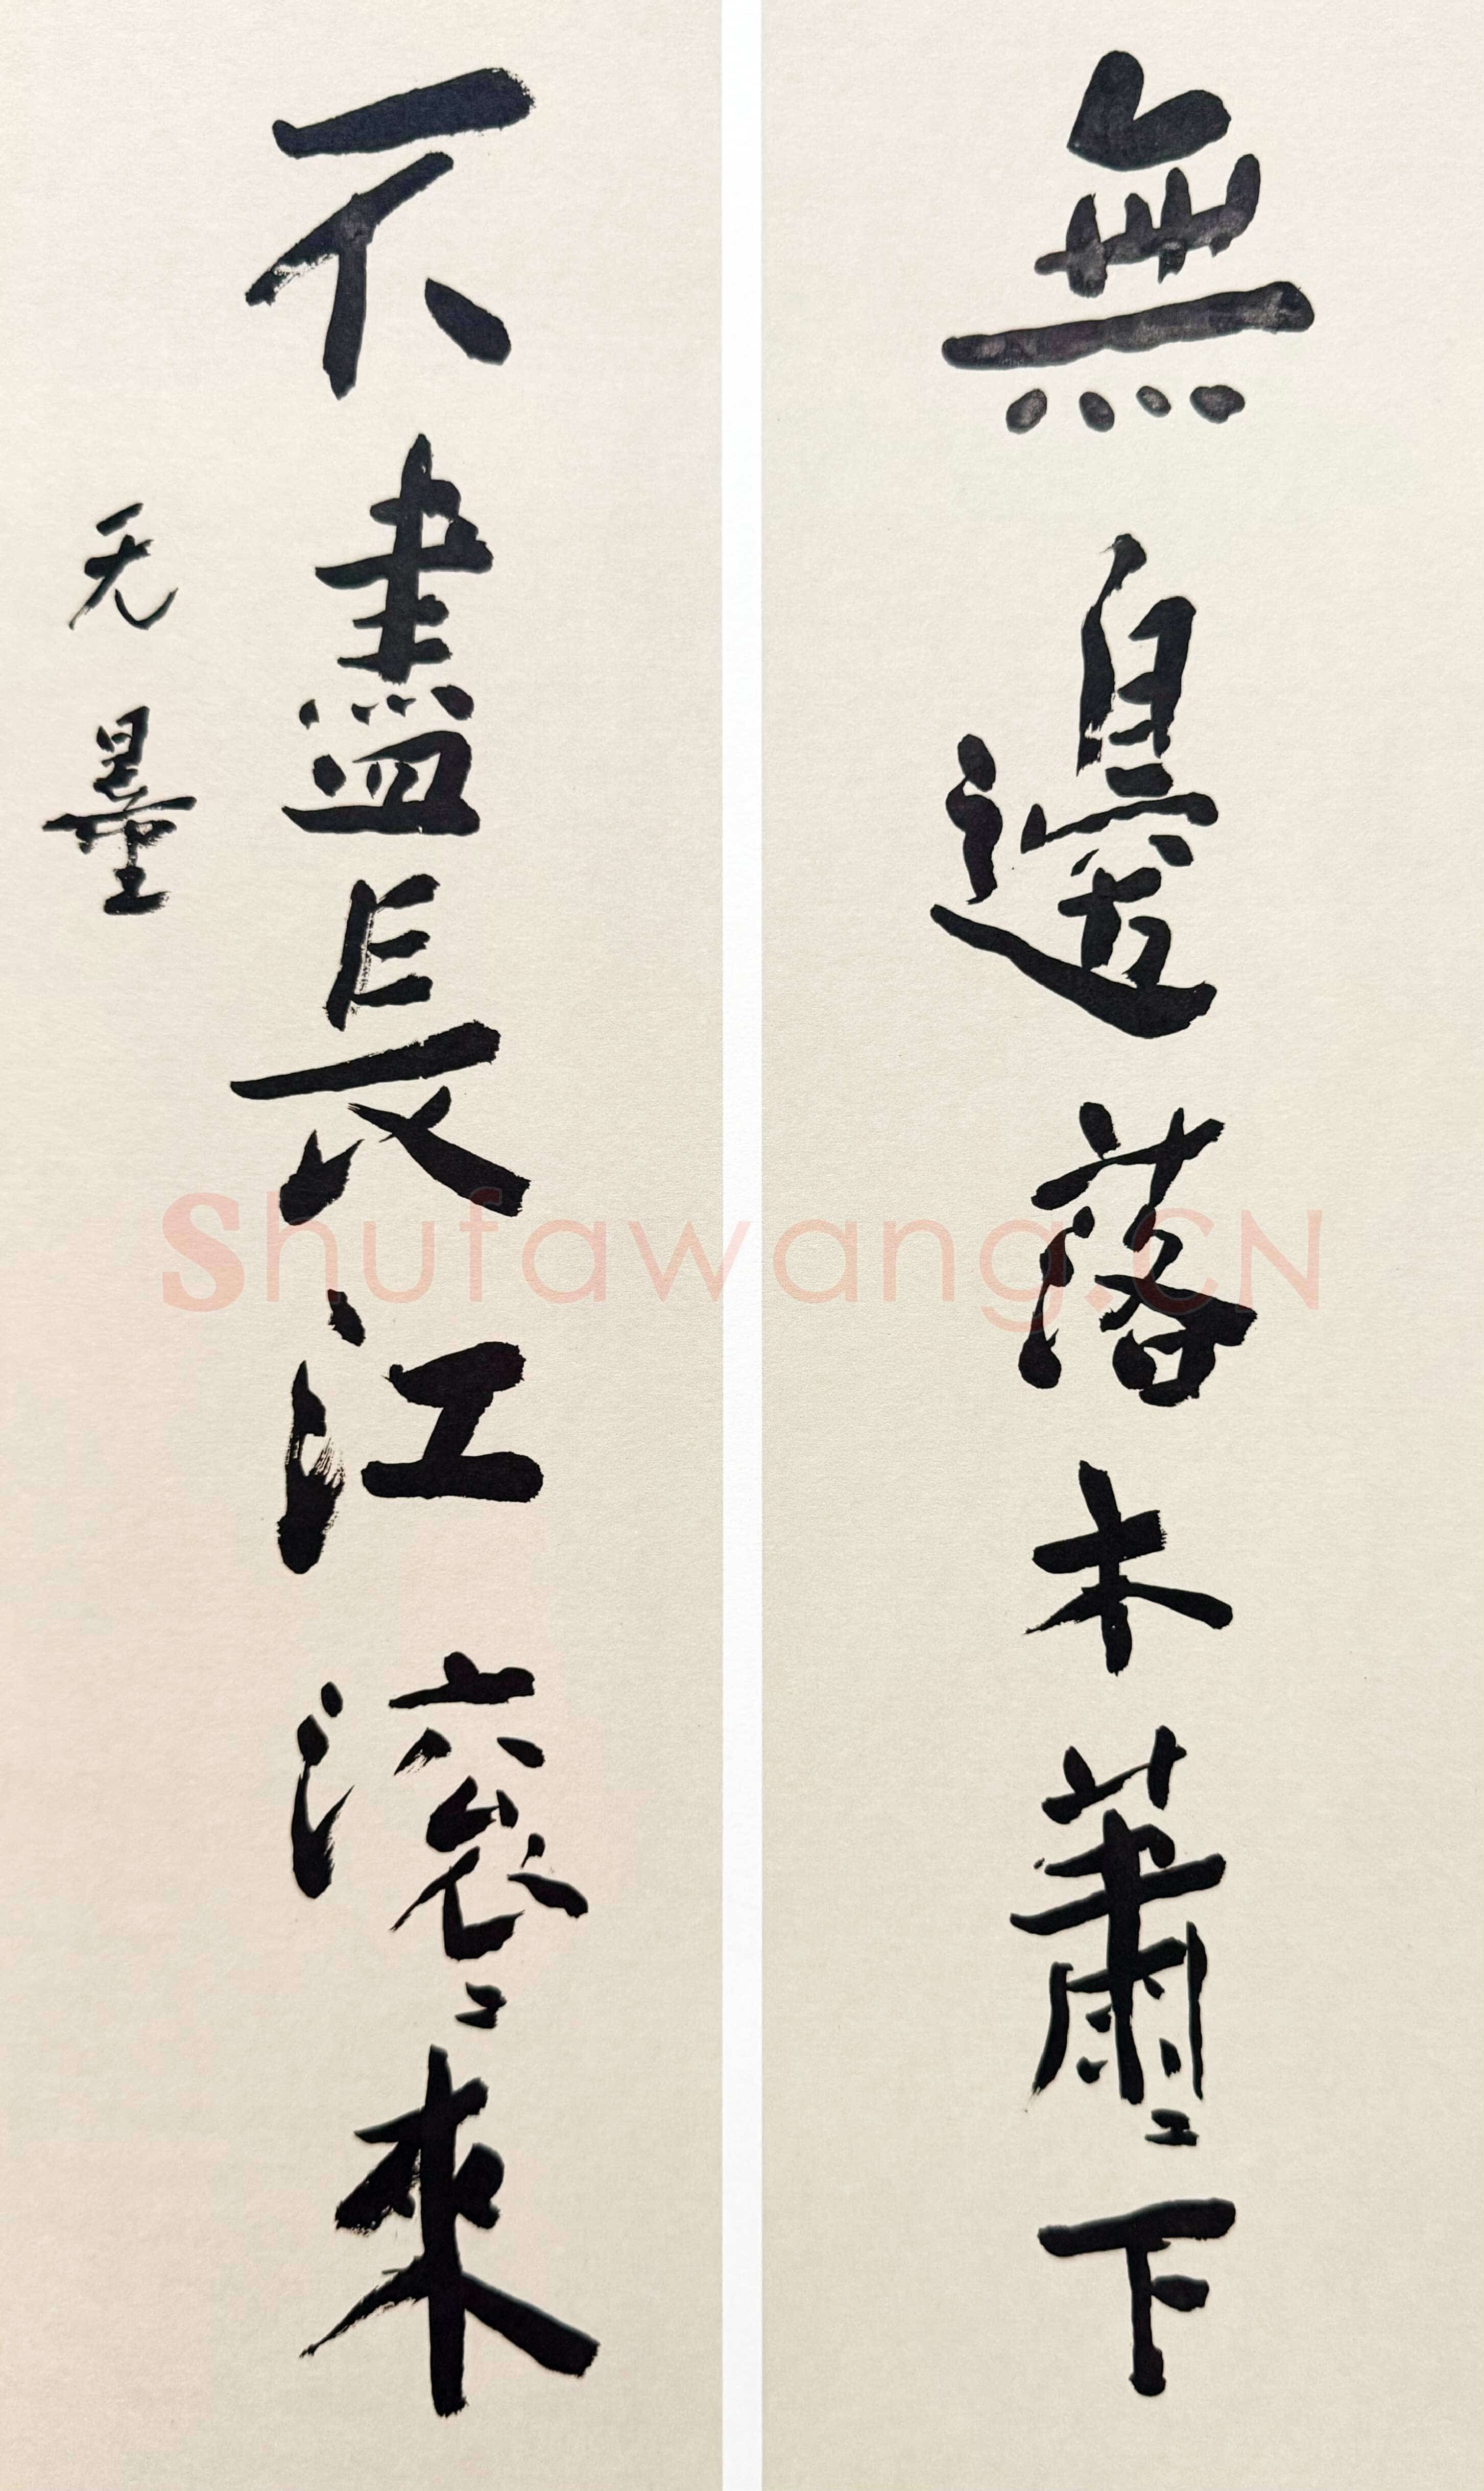 無邊落木蕭〻下
不盡長江滾〻來
无墨
Shufawang.CN